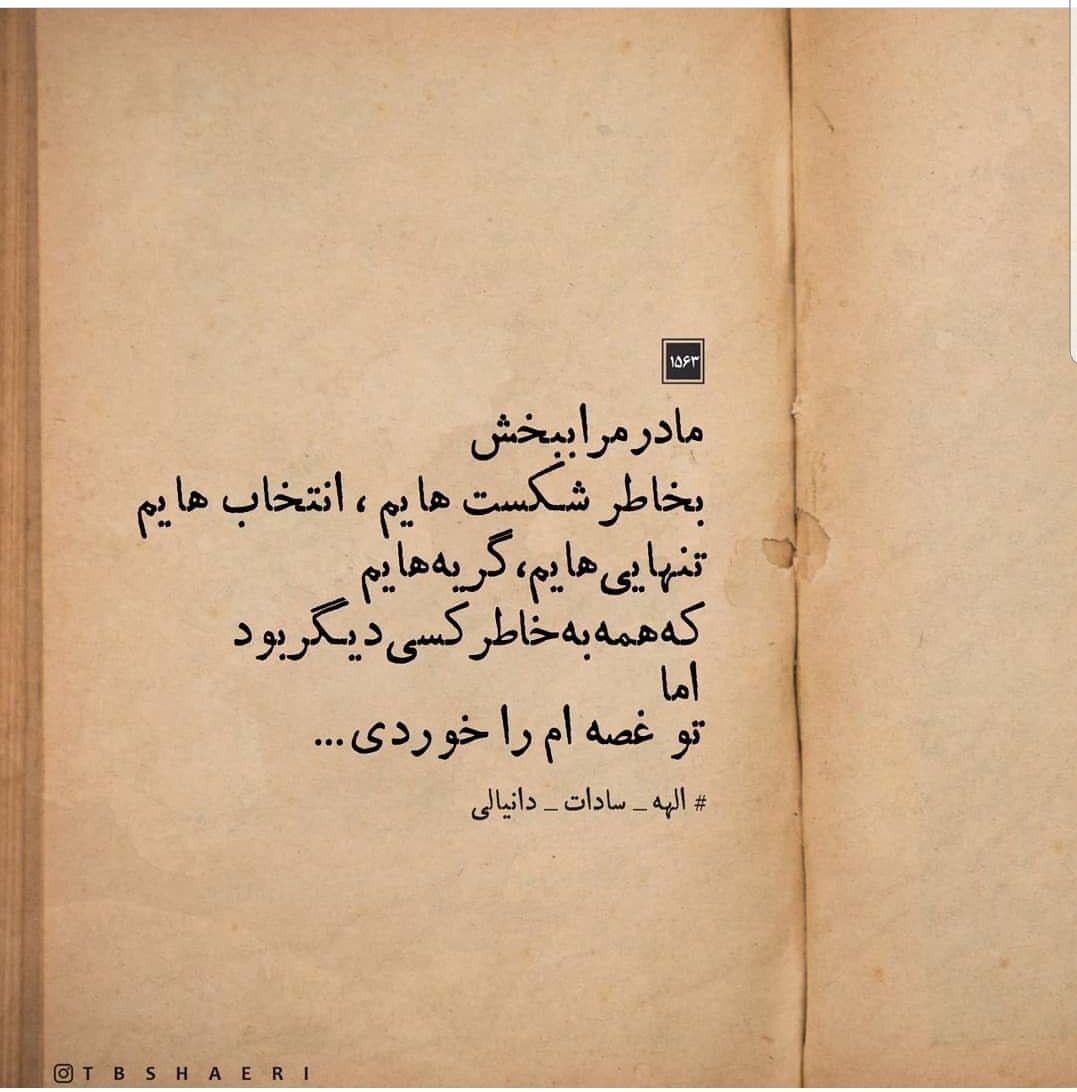 ۱۵۶۳
مادر مرا ببخش
بخاطر شکست هایم ، انتخاب هایم
تنهایی‌هایم،گریه‌هایم
که‌همه‌به‌خاطر کسی دیگر بود
اما
تو غصه ام را خوردی...
# الهه _ سادات _ دانیالی
T B S H A E R I